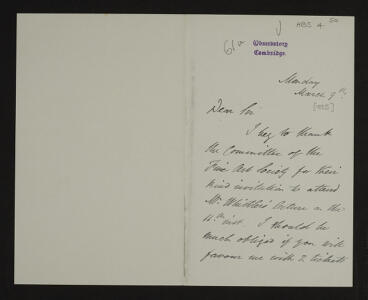 HBS 4 50
61v
Observatory
Cambridge.
Monday
March 9th
[1885]
Dear Sir
I beg to thank
the Committee of the
Fine Art Society for their
kind invitation to attend
Mr Whistler's lecture on the
11th inst. I should be
much obliged if you will
favour me with 2 tickets